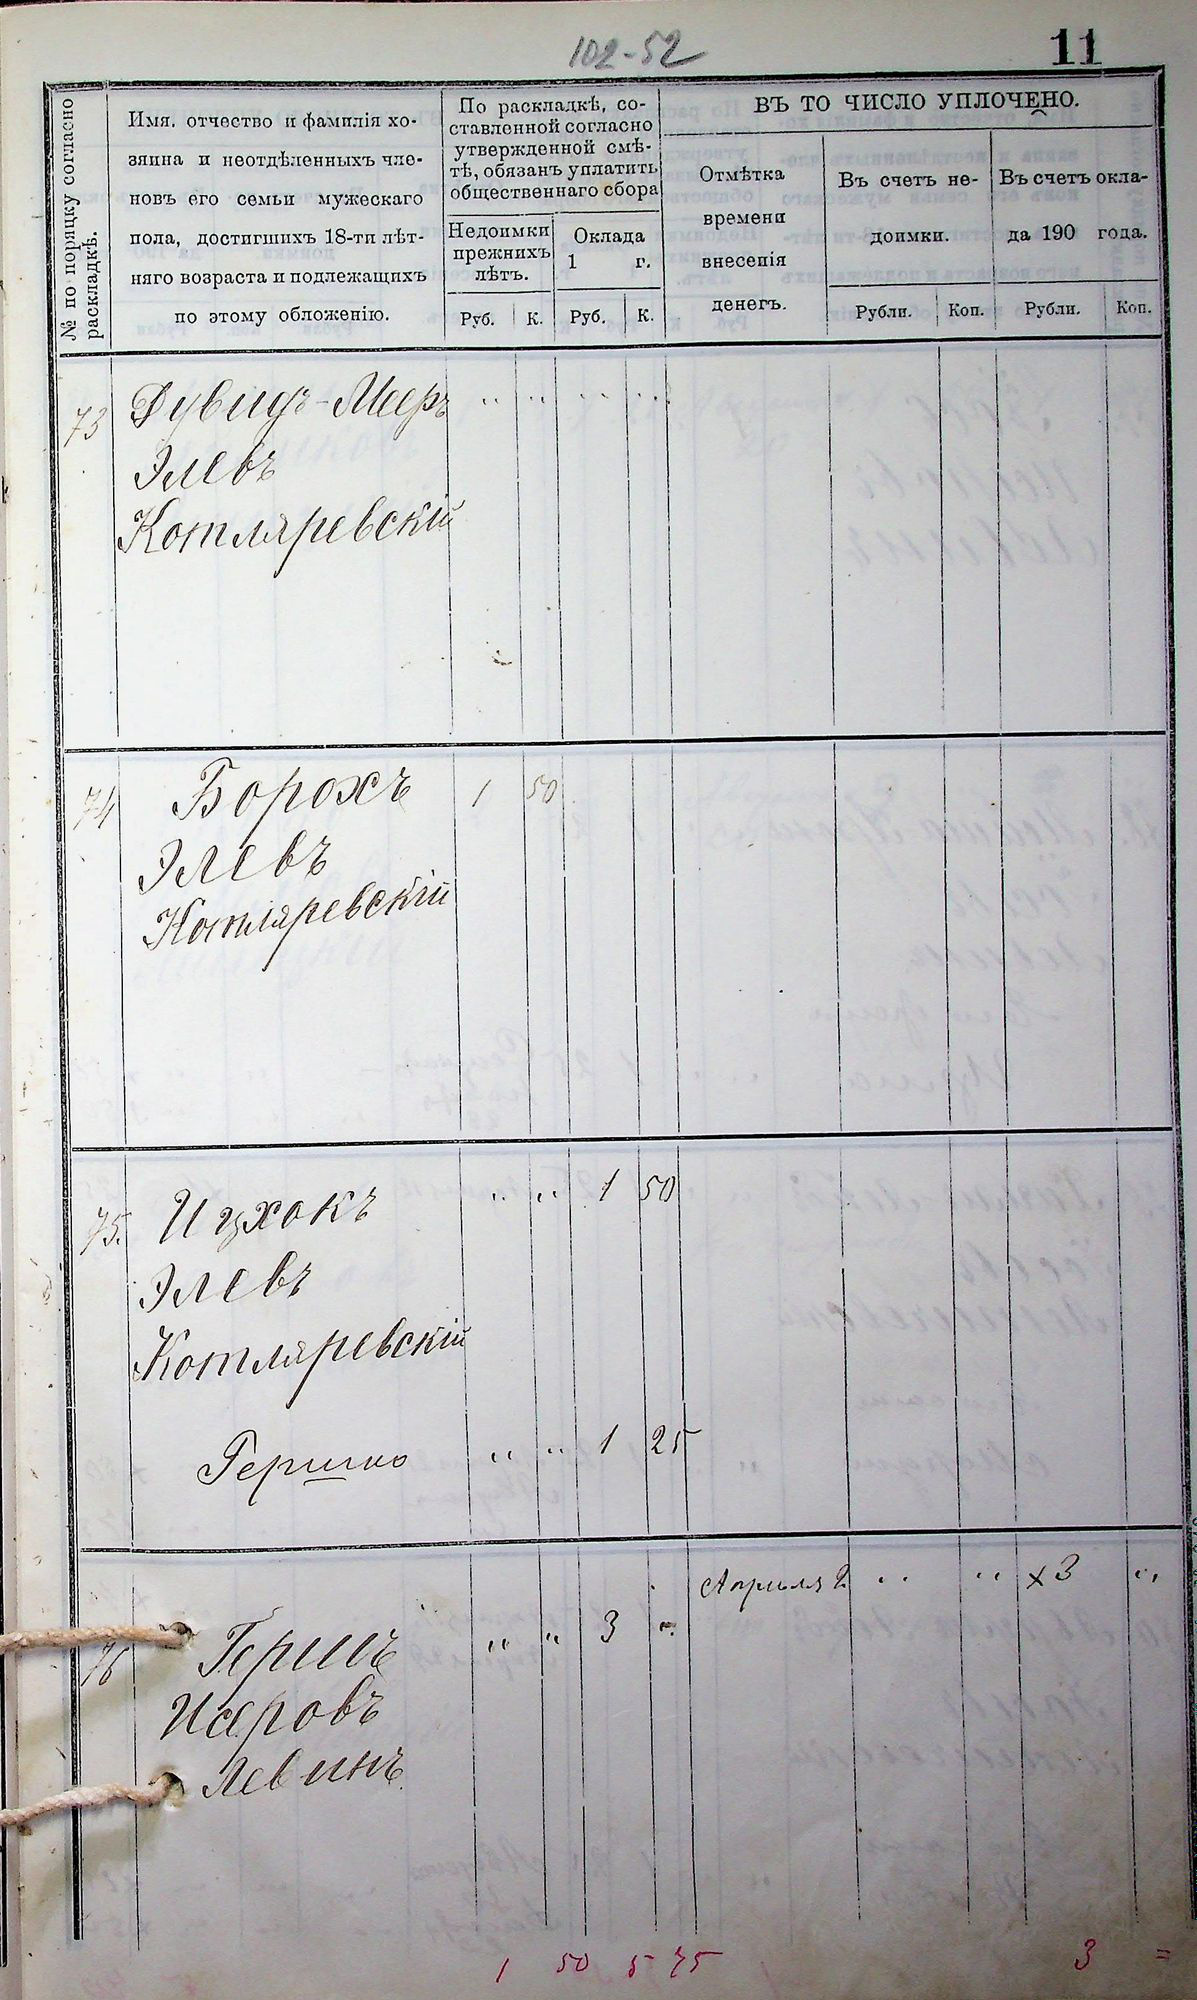 102-52
11
№ по порядку согласно
раскладкѣ.
Имя, отчество и фамилія хо-
зяина и неотдѣленныхъ чле-
новъ его семьи мужескаго
пола, достигшихъ 18-ти лѣт-
няго возраста и подлежащихъ
по этому обложенію.
По раскладкѣ, со-
ставленной согласно
утвержденной смѣ-
тѣ, обязанъ уплатить
общественнаго сбора
Недоимки
прежнихъ
лѣтъ.
Оклада
1 г.
Руб. К. Руб. К.
ВЪ ТО ЧИСЛО УПЛОЧЕНО.
Отмѣтка
времени
внесенія
денегъ.
Въ счетъ не-
доимки.
Въ счетъ окла-
да 190 года.
Рубли. Коп. Рубли. Коп.
73 Дувидъ-Мееръ " " " "
Элевъ
Котляревскій
74 Борохъ 1 50
Элевъ
Котляревскій
75. Ицхокъ " " 1 50
Элевъ
Котляревскій
Гершко " " 1 25
Апрѣля 2 " " х3 "
76 Гершъ " " 3 "
Исеровъ
Левинъ.
1 50 5 75 3 =